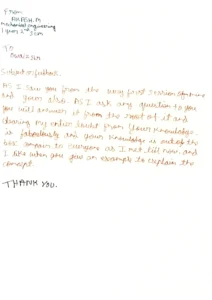 From
AKASH.M
mechanical Engineering
1 year 2nd sem
To
Subject:- feedback.
As I saw you from the very first session
and now also. As I ask any question to you
you will answer it from the root of it and
clearing my entire doubt from your knowledge.
is fabulously and your knowledge is out of the
box compair to everyone as I met till now. and
I like when you give an example to explain the
concept.
THANK YOU.